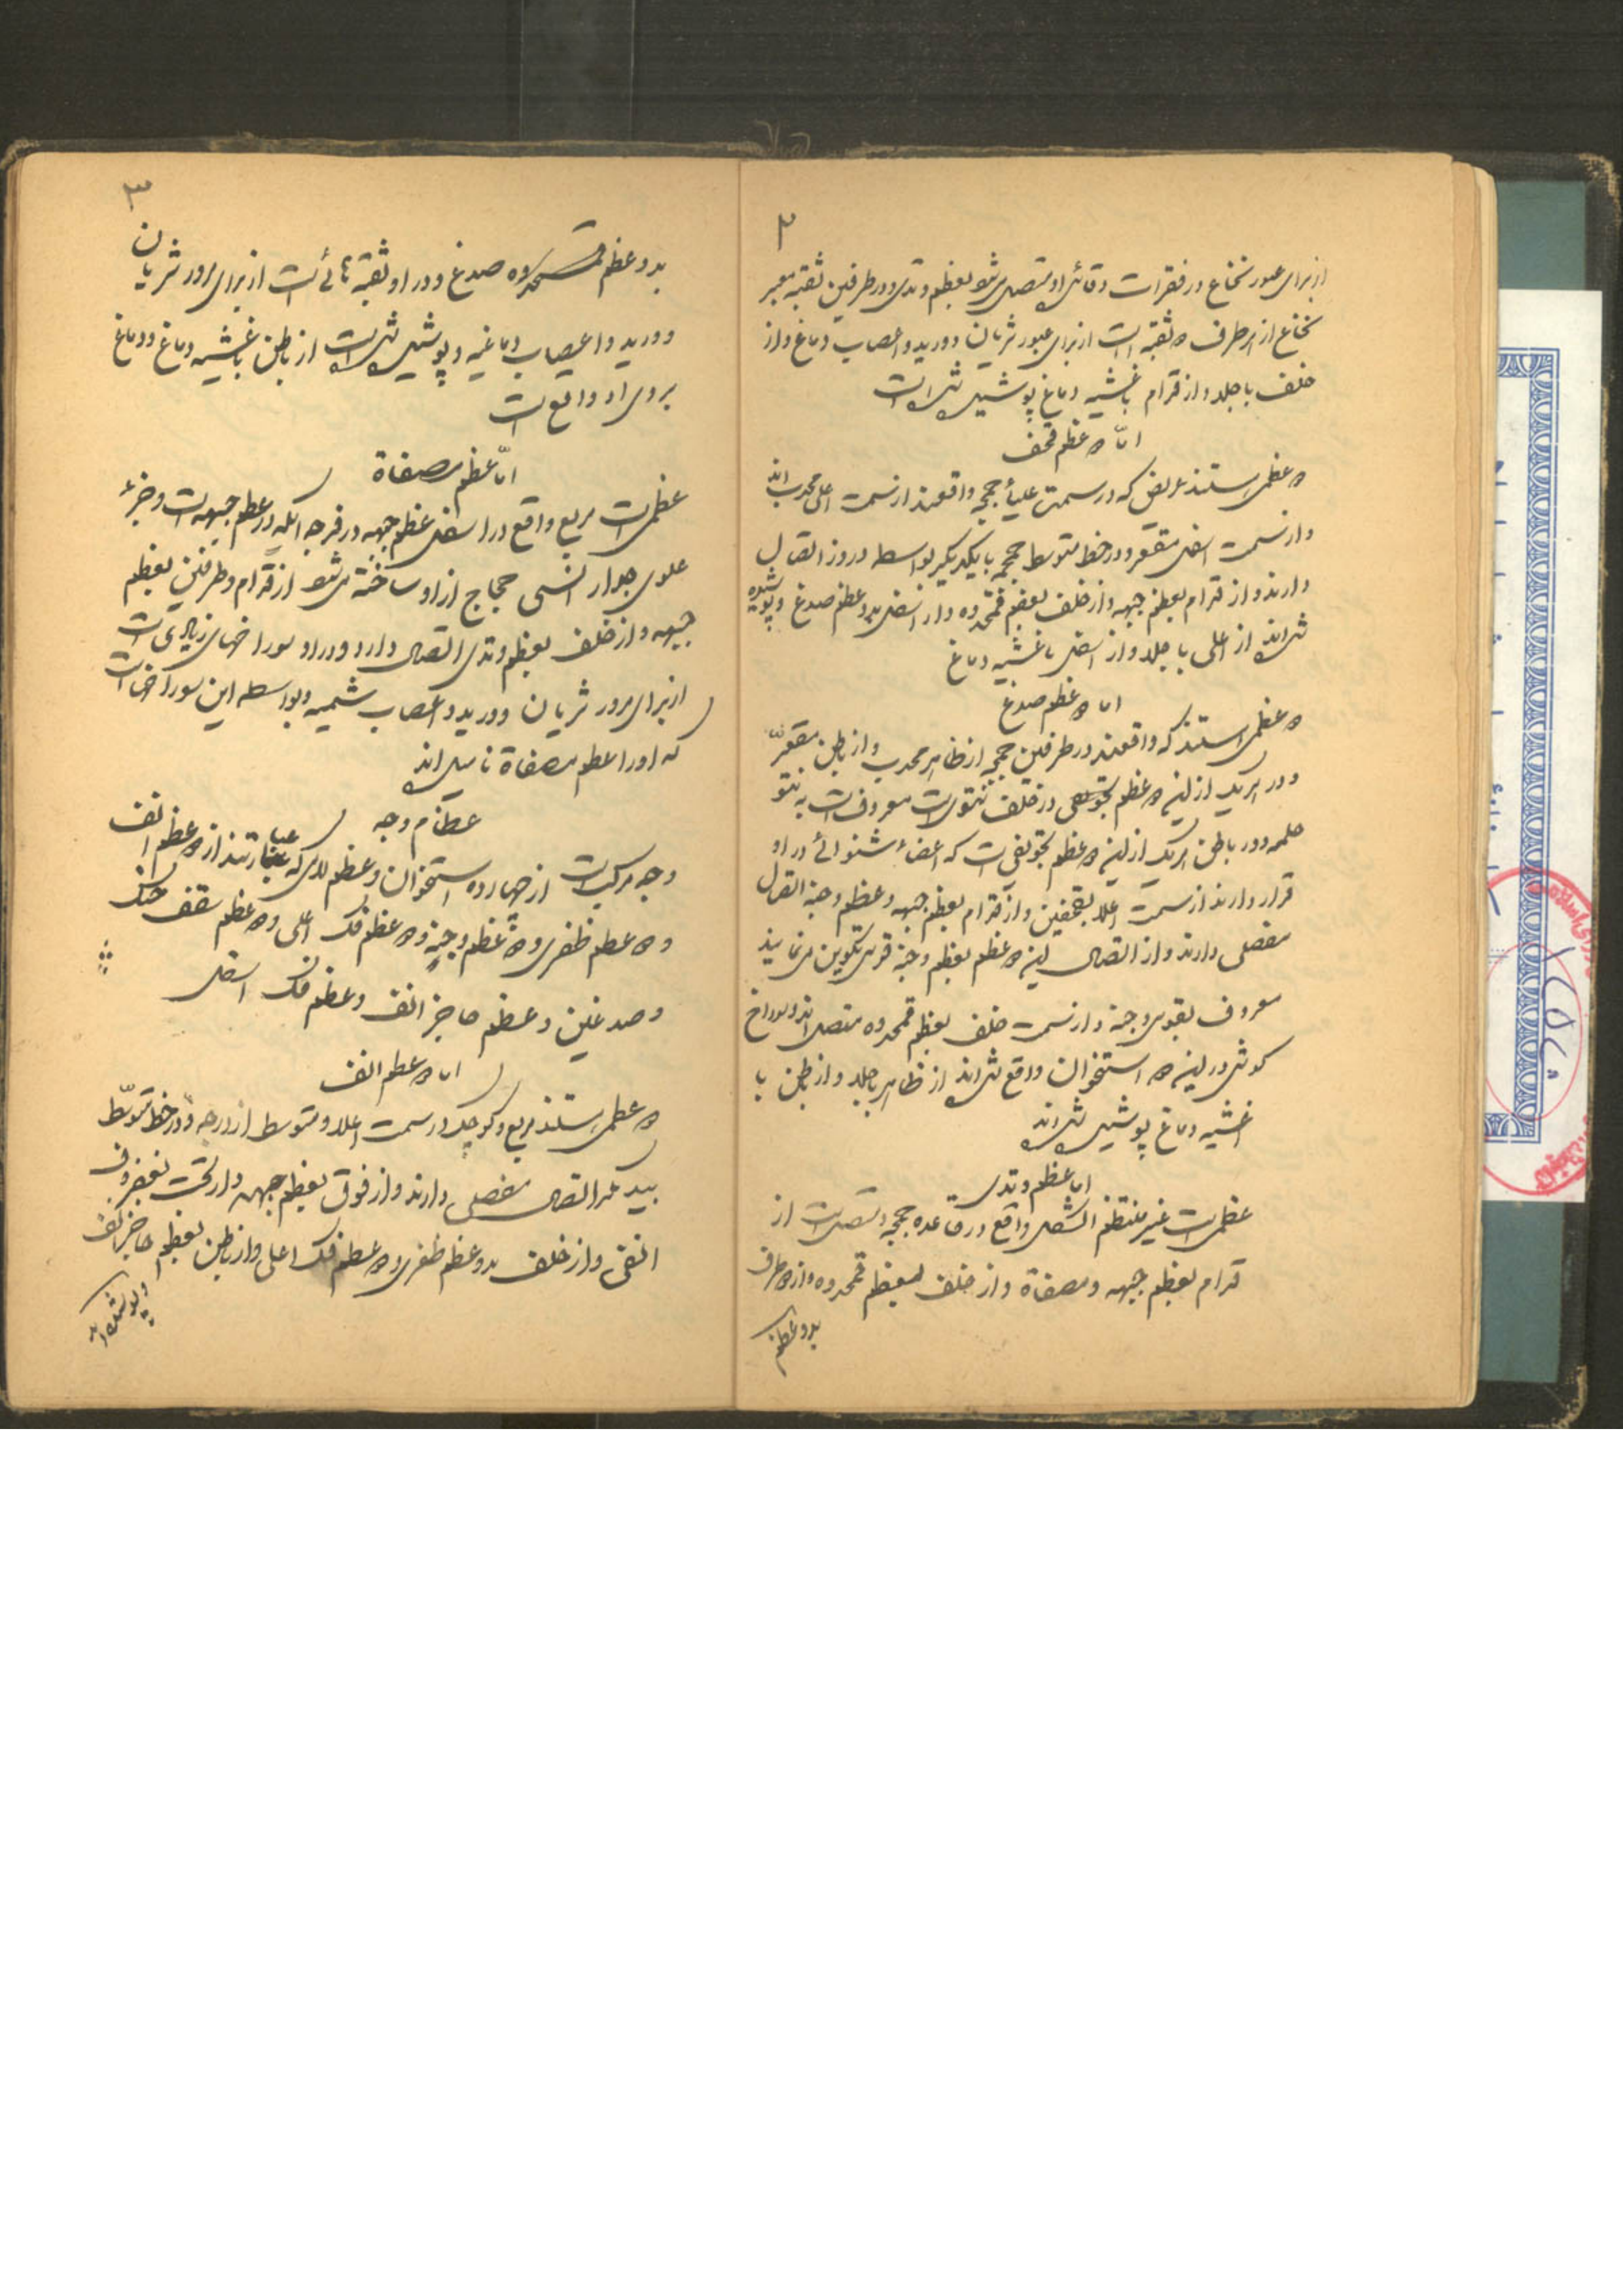 ۲
از برای عبور نخاع در فقرات و قائی او متصل میشود بعظم وتدی و در طرفین ثقبه معبر
نخاع از هر طرف ۲ ثقبه است از برای عبور شریان و ورید و اعصاب دماغ و از
خلف با جلد و از قدام باغشیه دماغ پوشیده شده است
امّا ۲ عظم قحف
۲ عظمی هستند عریض که در سمت علیاء جمجمه واقعند از سمت اعلی محدب اند
و از سمت اسفل مقعر و در خط متوسط جمجمه با یکدیگر بواسطه دروز اتصال
دارند و از قدام بعظم جبهه و از خلف بعظم قمحدوه و از اسفل بدو عظم صدغ و پوشیده
شده اند از اعلی با جلد و از اسفل باغشیه دماغ
اما ۲ عظم صدغ
۲ عظمی هستند که واقعند در طرفین جمجمه از ظاهر محدب و از باطن مقعر
و در هر یک از این ۲ عظم در خلف نتوی است معروف است به نتو
حلمه و در باطن هر یک از این ۲ عظم تجویفی است که اعضاء شنوائی در او
قرار دارند از سمت اعلا بقحفین و از قدام بعظم جبهه و عظم وجنه اتصال
مفصلی دارند و از اتصال این ۲ عظم بعظم وجنه قوسی تکوین می نمایند
معروف بقوس وجنه و از سمت خلف بعظم قمحدوه متصل اند و سوراخ
گوش در این ۲ استخوان واقع شده اند از ظاهر با جلد و از باطن با
اغشیه دماغ پوشیده شده اند
اما عظم وتدی
عظمی است غیر منتظم الشکل واقع در قاعده جمجمه و متصل است از
قدام بعظم جبهه و مصفاة و از خلف بعظم قمحدوه و از ۲ طرف
بدو عظم
۳
بدو عظم صدغ و در او ثقبه هائی است از برای مرور شریان
و ورید و اعصاب دماغیه و پوشیده شده است از باطن باغشیه دماغ و دماغ
بروی او واقع است
امّا عظم مصفاة
عظمی است مربع واقع در اسفل عظم جبهه در فرجه که در عظم جبهه است و جزء
علوی جدار انسی حجاج از او ساخته میشود از قدام و طرفین بعظم
جبهه و از خلف بعظم وتدی اتصال دارد و در او سوراخهای زیادی است
از برای مرور شریان و ورید و اعصاب شمیه و بواسطه این سوراخها است
که او را عظم مصفاة نامیده اند
عظام وجه
وجه مرکب است از چهارده استخوان و عظم لامی که عبارتند از ۲ عظم انف
و ۲ عظم ظفری و ۲ عظم وجنه و ۲ عظم فک اعلی و ۲ عظم سقف حنک
و صدغین و عظم حاجز انف و عظم فک اسفل
اما ۲ عظم انف
۲ عظمی هستند مربع و کوچک در سمت اعلا و متوسط از وجه و در خط متوسّط
بیکدیگر اتصال مفصلی دارند و از فوق بعظم جبهه و از تحت بغضروف
انفی و از خلف بدو عظم ظفری و ۲ عظم فک اعلی و از باطن بعظم حاجز انف
و پوشیده اند